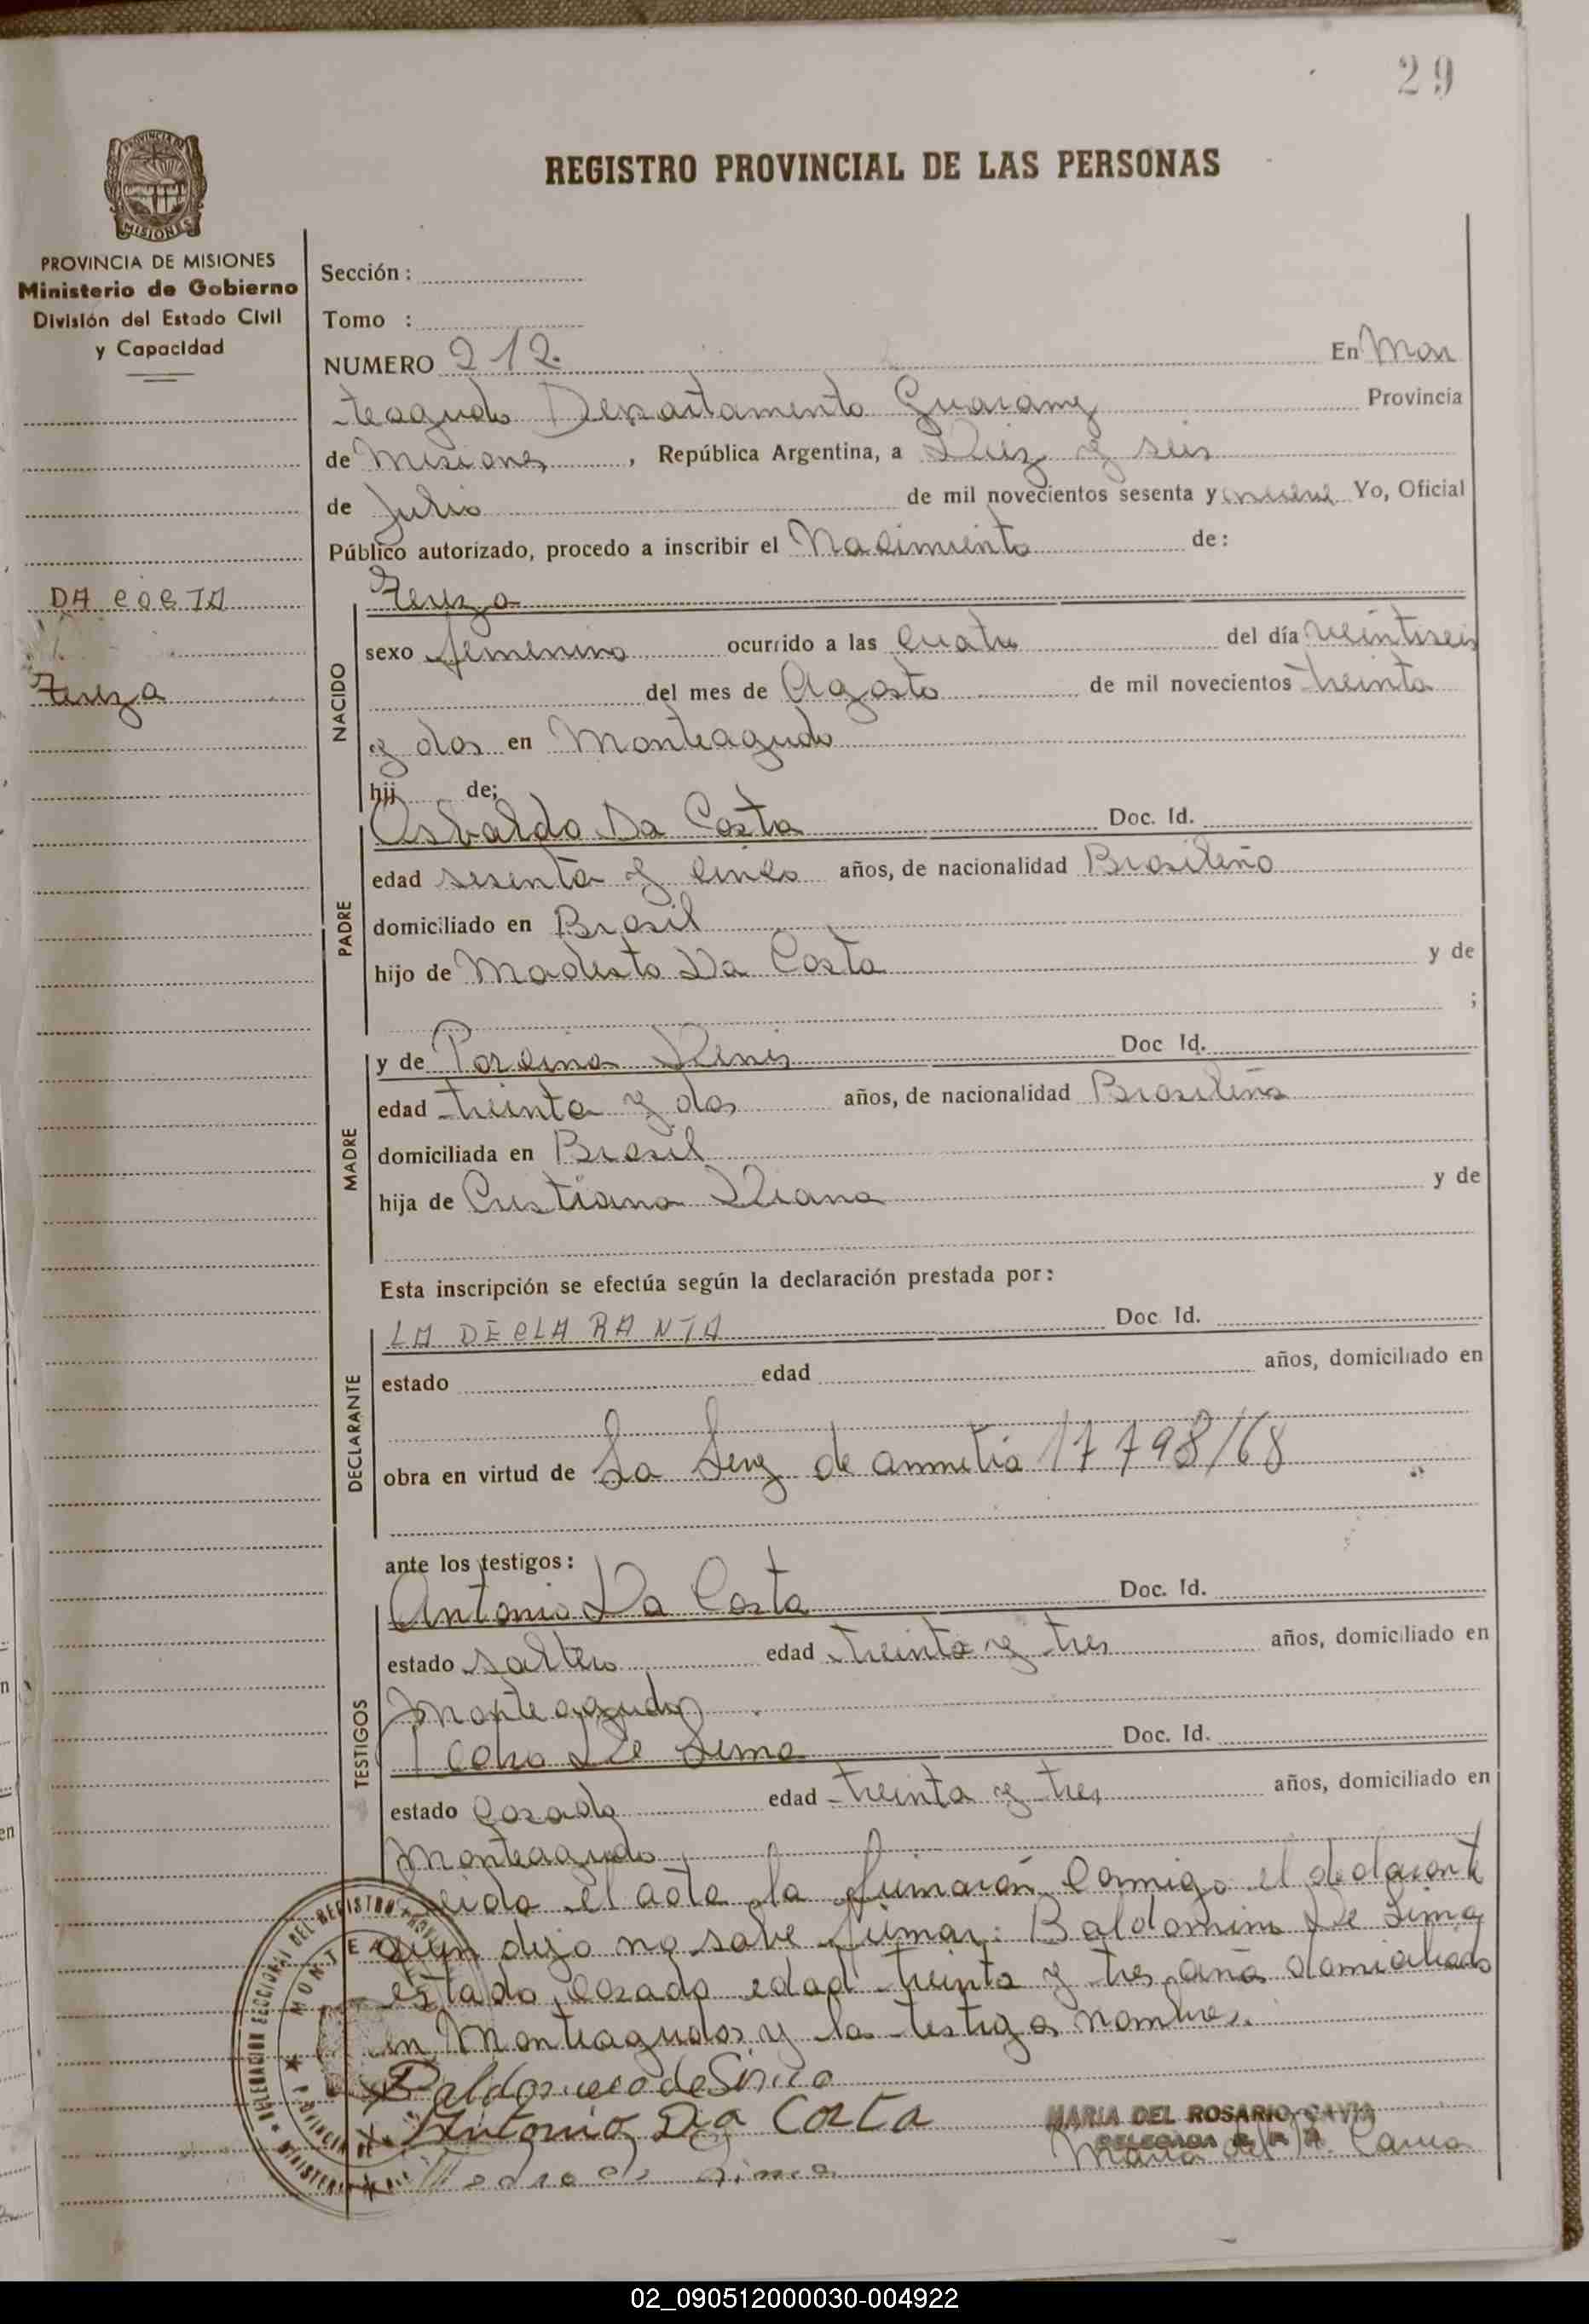 29
REGISTRO PROVINCIAL DE LAS PERSONAS
PROVINCIA DE MISIONES
MISIONES
Ministerio de Gobierno
División del Estado Civil
y Capacidad
DA COSTA
Tereza
Sección :
Tomo :
NUMERO 212. En Mon
teagudo Departamento Guarany Provincia
de Misiones, República Argentina, a Diez y seis
de Julio de mil novecientos sesenta y nueve Yo, Oficial
Público autorizado, procedo a inscribir el Nacimiento de:
Tereza
NACIDO
sexo femenino ocurrido a las cuatro del día veintiseis
del mes de Agosto de mil novecientos treinta
y dos en Monteagudo
hij de;
PADRE
Osbaldo Da Costa Doc. Id.
edad sesenta y cinco años, de nacionalidad Brasileño
domiciliado en Brasil
hijo de Modesto Da Costa y de
;
MADRE
y de Doc Id.
edad treinta y dos años, de nacionalidad Brasileña
domiciliada en Brasil
hija de Cristiana y de
Esta inscripción se efectúa según la declaración prestada por:
DECLARANTE
LA DECLARANTA Doc. Id.
estado edad años, domiciliado en
obra en virtud de La Ley de 17798/68
ante los testigos:
TESTIGOS
Antonio Da Costa Doc. Id.
estado soltero edad treinta y tres años, domiciliado en
Monteagudo
De Lima Doc. Id.
estado Casado edad treinta y tres años, domiciliado en
Monteagudo
Leida el acta la firmaron Conmigo el declarante
quien dijo no sabe firmar: Baldomiro De Lima
estado casado edad treinta y tres domiciliado
en Monteagudo y
Antonio Da Costa
MARIA DEL ROSARIO CAVIA
DELEGADA R. P. P.
Maria del R. Cavia
02_090512000030-004922